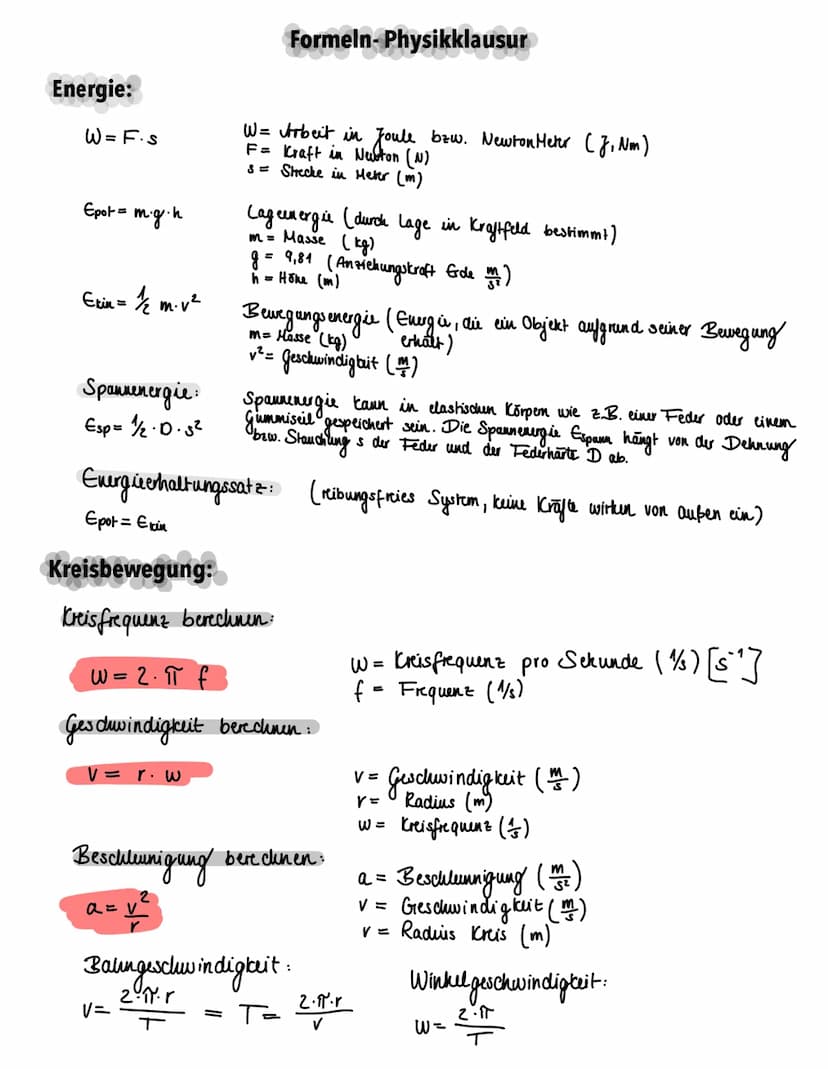 Formeln- Physikklausur
Energie:
W = F · s
W = Arbeit in Joule bzw. NewtonMeter (J, Nm)
F = Kraft in Newton (N)
s = Strecke in Meter (m)
Epot = m·g·h
Lagenergie (durch Lage in Kraftfeld bestimmt)
m = Masse (kg)
g = 9,81 (Anziehungskraft Erde m/s²)
h = Höhe (m)
Ekin = 1/2 m·v²
Bewegungsenergie (Energie, die ein Objekt aufgrund seiner Bewegung
erhält)
m = Masse (kg)
v² = Geschwindigkeit (m/s)
Spannenergie:
Esp = 1/2 · D · s²
Spannenergie kann in elastischen Körpern wie z.B. einer Feder oder einem
Gummiseil gespeichert sein. Die Spannenergie Espann hängt von der Dehnung
bzw. Stauchung s der Feder und der Federhärte D ab.
Energieerhaltungssatz: (reibungsfreies System, keine Kräfte wirken von außen ein)
Epot = Ekin
Kreisbewegung:
Kreisfrequenz berechnen:
w = 2 · π f
w = Kreisfrequenz pro Sekunde (1/s) [s⁻¹]
f = Frequenz (1/s)
Geschwindigkeit berechnen:
v = r · w
v = Geschwindigkeit (m/s)
r = Radius (m)
w = Kreisfrequenz (1/s)
Beschleunigung berechnen:
a = v²/r
a = Beschleunnigung (m/s²)
v = Geschwindigkeit (m/s)
r = Radius Kreis (m)
Bahngeschwindigkeit:
v = 2·π·r/T = T = 2·π·r/v
Winkelgeschwindigkeit:
w = 2·π/T